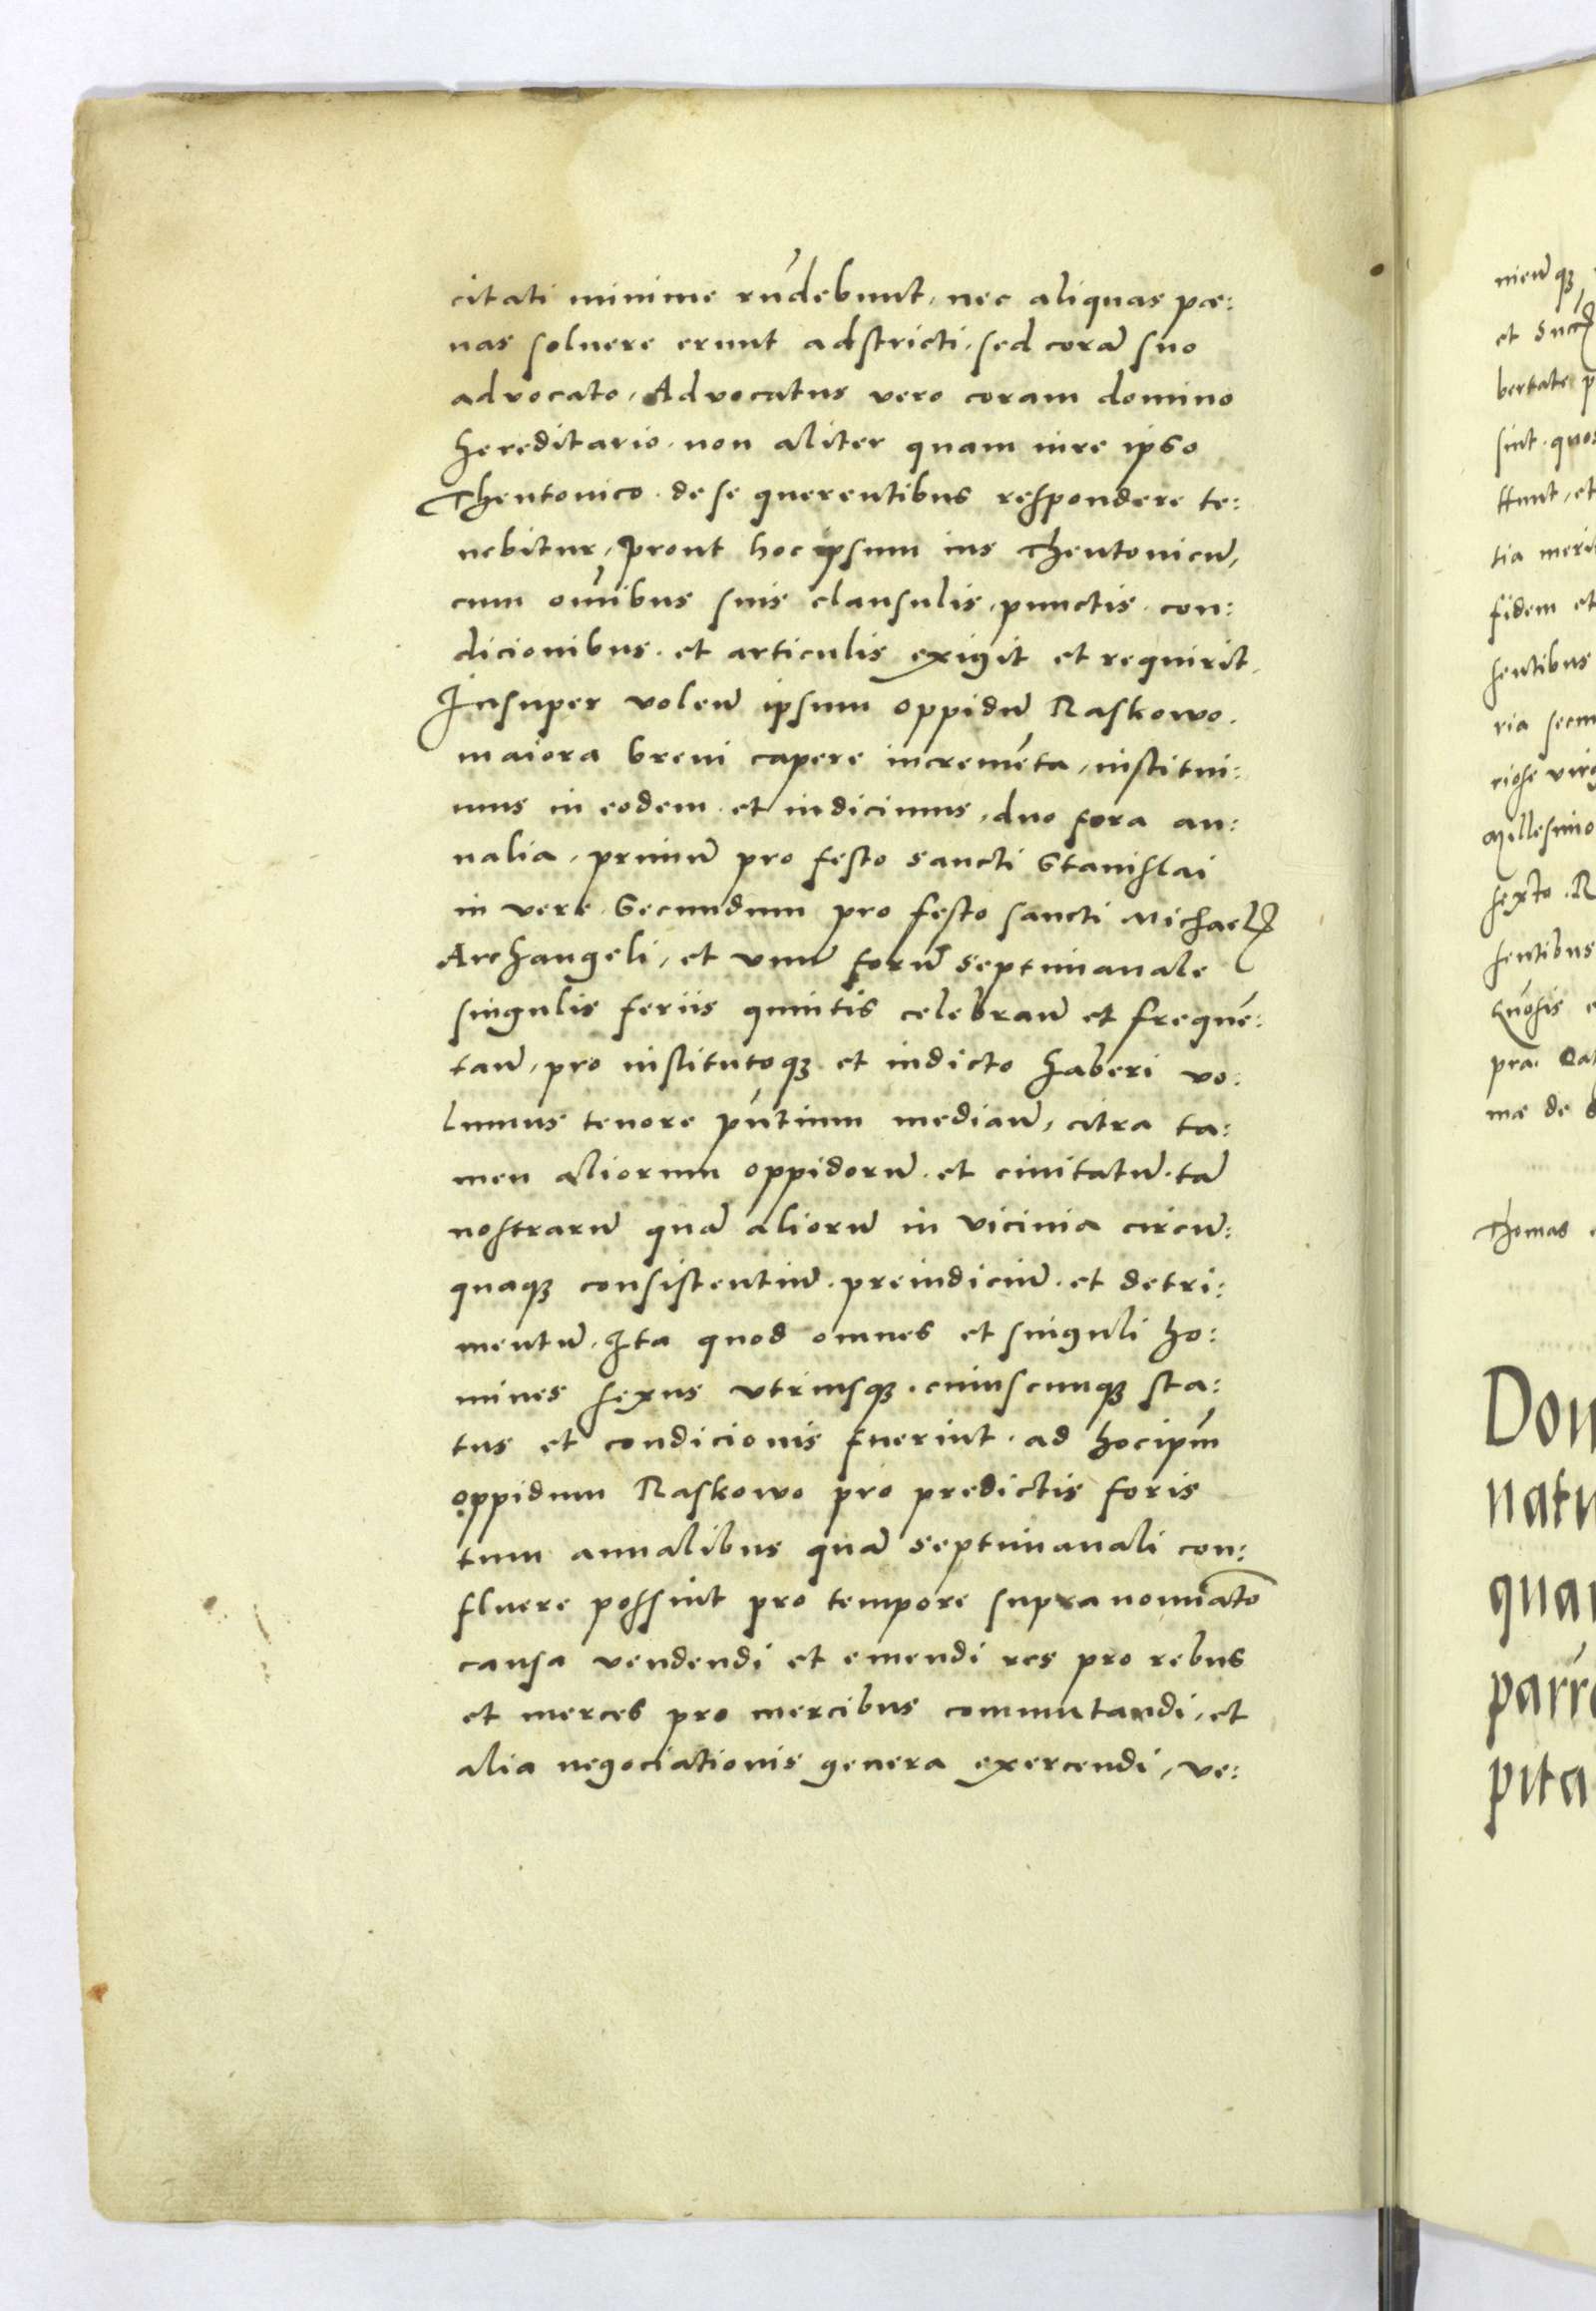 citati minime rñdebunt, nec aliquas pœ:
nas soluere erunt adstricti, sed corã suo
advocato, Advocatus vero coram domino
hereditario. non aliter quam iure ipso
Theutonico. de se querentibus respondere te:
nebitur, prout hoc ipsum ius Theutonicũ,
cum oĩnibus suis clausulis, punctis. con:
dicionibus. et articulis exigit et requirit.
Insuper volenũ ipsum oppidũ Raskowo.
maiora breui capere incremẽta, institui:
mus in eodem. et indicimus, duo fora an:
nalia, primũ pro festo sancti Stanislai
in vere. Secundum pro festo sancti Michaelꝭ
Archangeli, et vnũ forũ septimanale
singulis feriis quintis celebranũ et frequẽ:
tanũ, pro institutoqꝫ et indicto haberi vo:
lumus tenore pñtium medianũ, citra ta:
men aliorum oppidorũ. et ciuitatũ. tã
nostrarũ quã aliorũ in vicinia circũ:
quaqꝫ consistentiũ. preiudiciũ. et detri:
mentũ. Ita quod omnes et singuli ho:
mines sexus vtriusqꝫ. cuiuscunqꝫ sta:
tus et condicionis fuerint. ad hoc ipm̃
oppidum Raskowo pro predictis foris
tum annalibus quã septimanali con:
fluere possint pro tempore supra nomiãto
causa vendendi et emendi res pro rebus
et merces pro mercibus commutandi, et
alia negociationis genera exercendi, ve:
nienũqꝫ
et
bertate
sint. quos
et
tia
fidem et
sentibus
ria
riose
Millesimo
sexto. R
sentibus
pra.
mæ de
Thomas
Don
natu
quar
pita